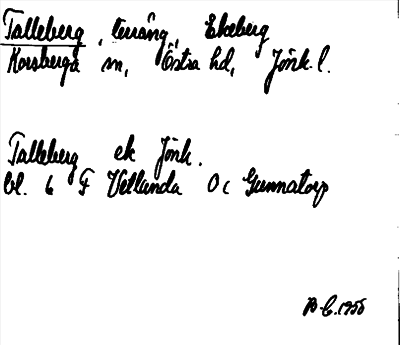 Talleberg, terräng, Ekeberg
Korsberga sn, Östra hd, Jönk. l.
Talleberg ek Jönk.
bl. 6 F Vetlanda Oc Gunnatorp
B.C. 1950